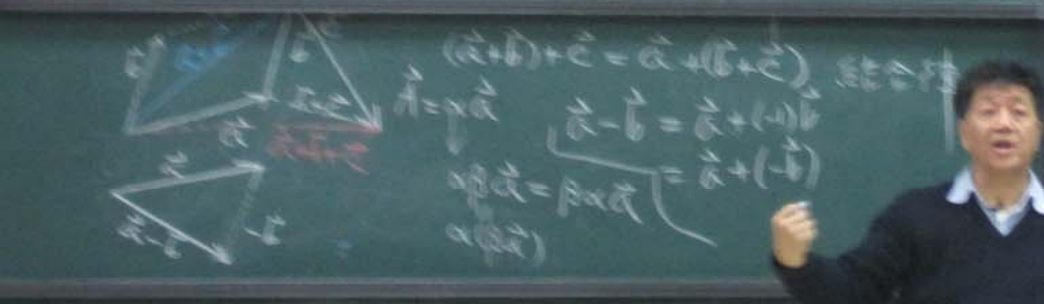 (a⃗+b⃗)+c⃗ = a⃗+(b⃗+c⃗) 结合律
A⃗=αa⃗
a⃗-b⃗ = a⃗+(-1)b⃗
= a⃗+(-b⃗)
αβa⃗=βαa⃗
α(βa⃗)
b⃗
a⃗+b⃗
b⃗
c⃗
b⃗+c⃗
a⃗
a⃗+b⃗+c⃗
a⃗
a⃗-b⃗
-b⃗